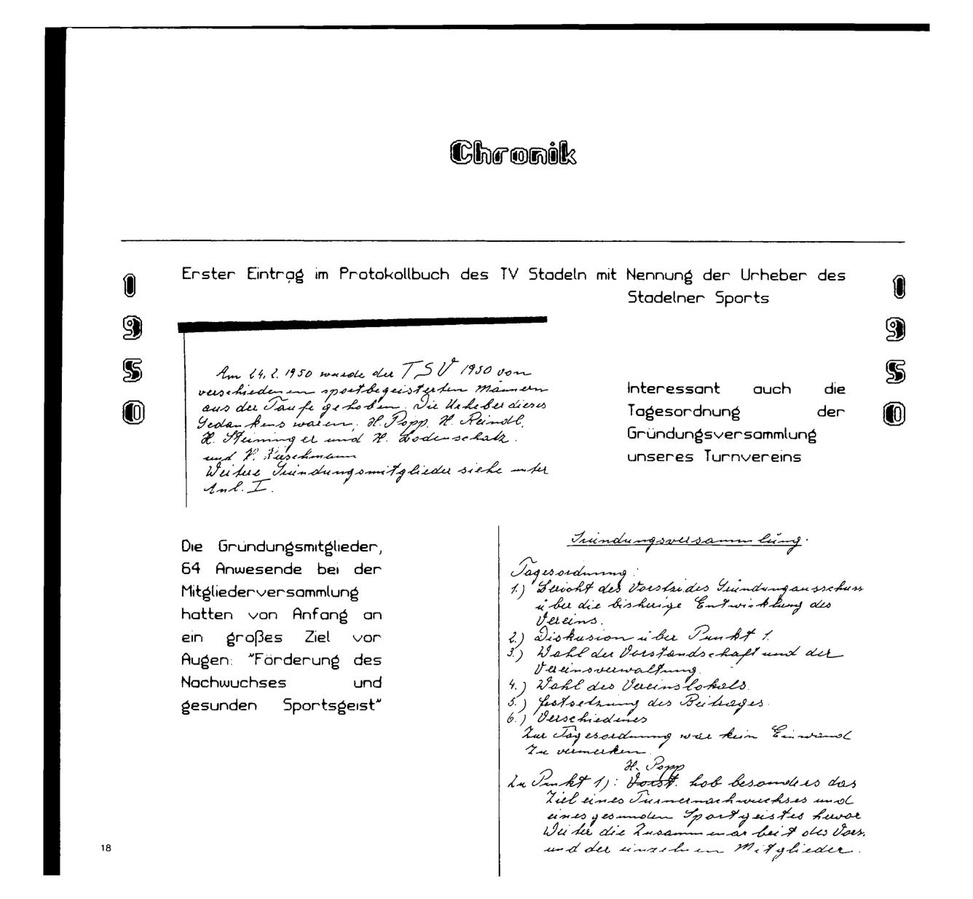 Chronik
Erster Eintrag im Protokollbuch des TV Stadeln mit Nennung der Urheber des
Stadelner Sports
1
9
5
0
1
9
5
0
Am 24.2.1950 wurde der TSV 1950 von
verschiedenen sportbegeisterten Männern
aus der Taufe gehoben. Die Urheber dieses
Gedankens waren, H. Popp, H. Reindl,
H. Steininger und H. Lodenschatz.
und
Weitere Gründungsmitglieder siehe unter
Anl. I.
Interessant auch die
Tagesordnung der
Gründungsversammlung
unseres Turnvereins
Die Gründungsmitglieder,
64 Anwesende bei der
Mitgliederversammlung
hatten von Anfang an
ein großes Ziel vor
Augen: "Förderung des
Nachwuchses und
gesunden Sportsgeist"
Gründungsversammlung.
Tagesordnung:
1.) Bericht des Gründungausschuss
über die bisherige Entwicklung des
Vereins.
2.) Diskusion über Punkt 1.
3.) Wahl der Vorstandschaft und der
Vereinsverwaltung.
4.) Wahl des Vereinslokals.
5.) Festsetzung des Beitrages.
6.) Verschiedenes
Zur Tagesordnung war kein Einwand
zu vermerken.
H. Popp
Zu Punkt 1): Vorst. hob besonders das
Ziel eines Turnernachwuchses und
eines gesunden Sportgeistes hervor
Weiter die Zusammenarbeit des Vors.
und der einzelnen Mitglieder.
18